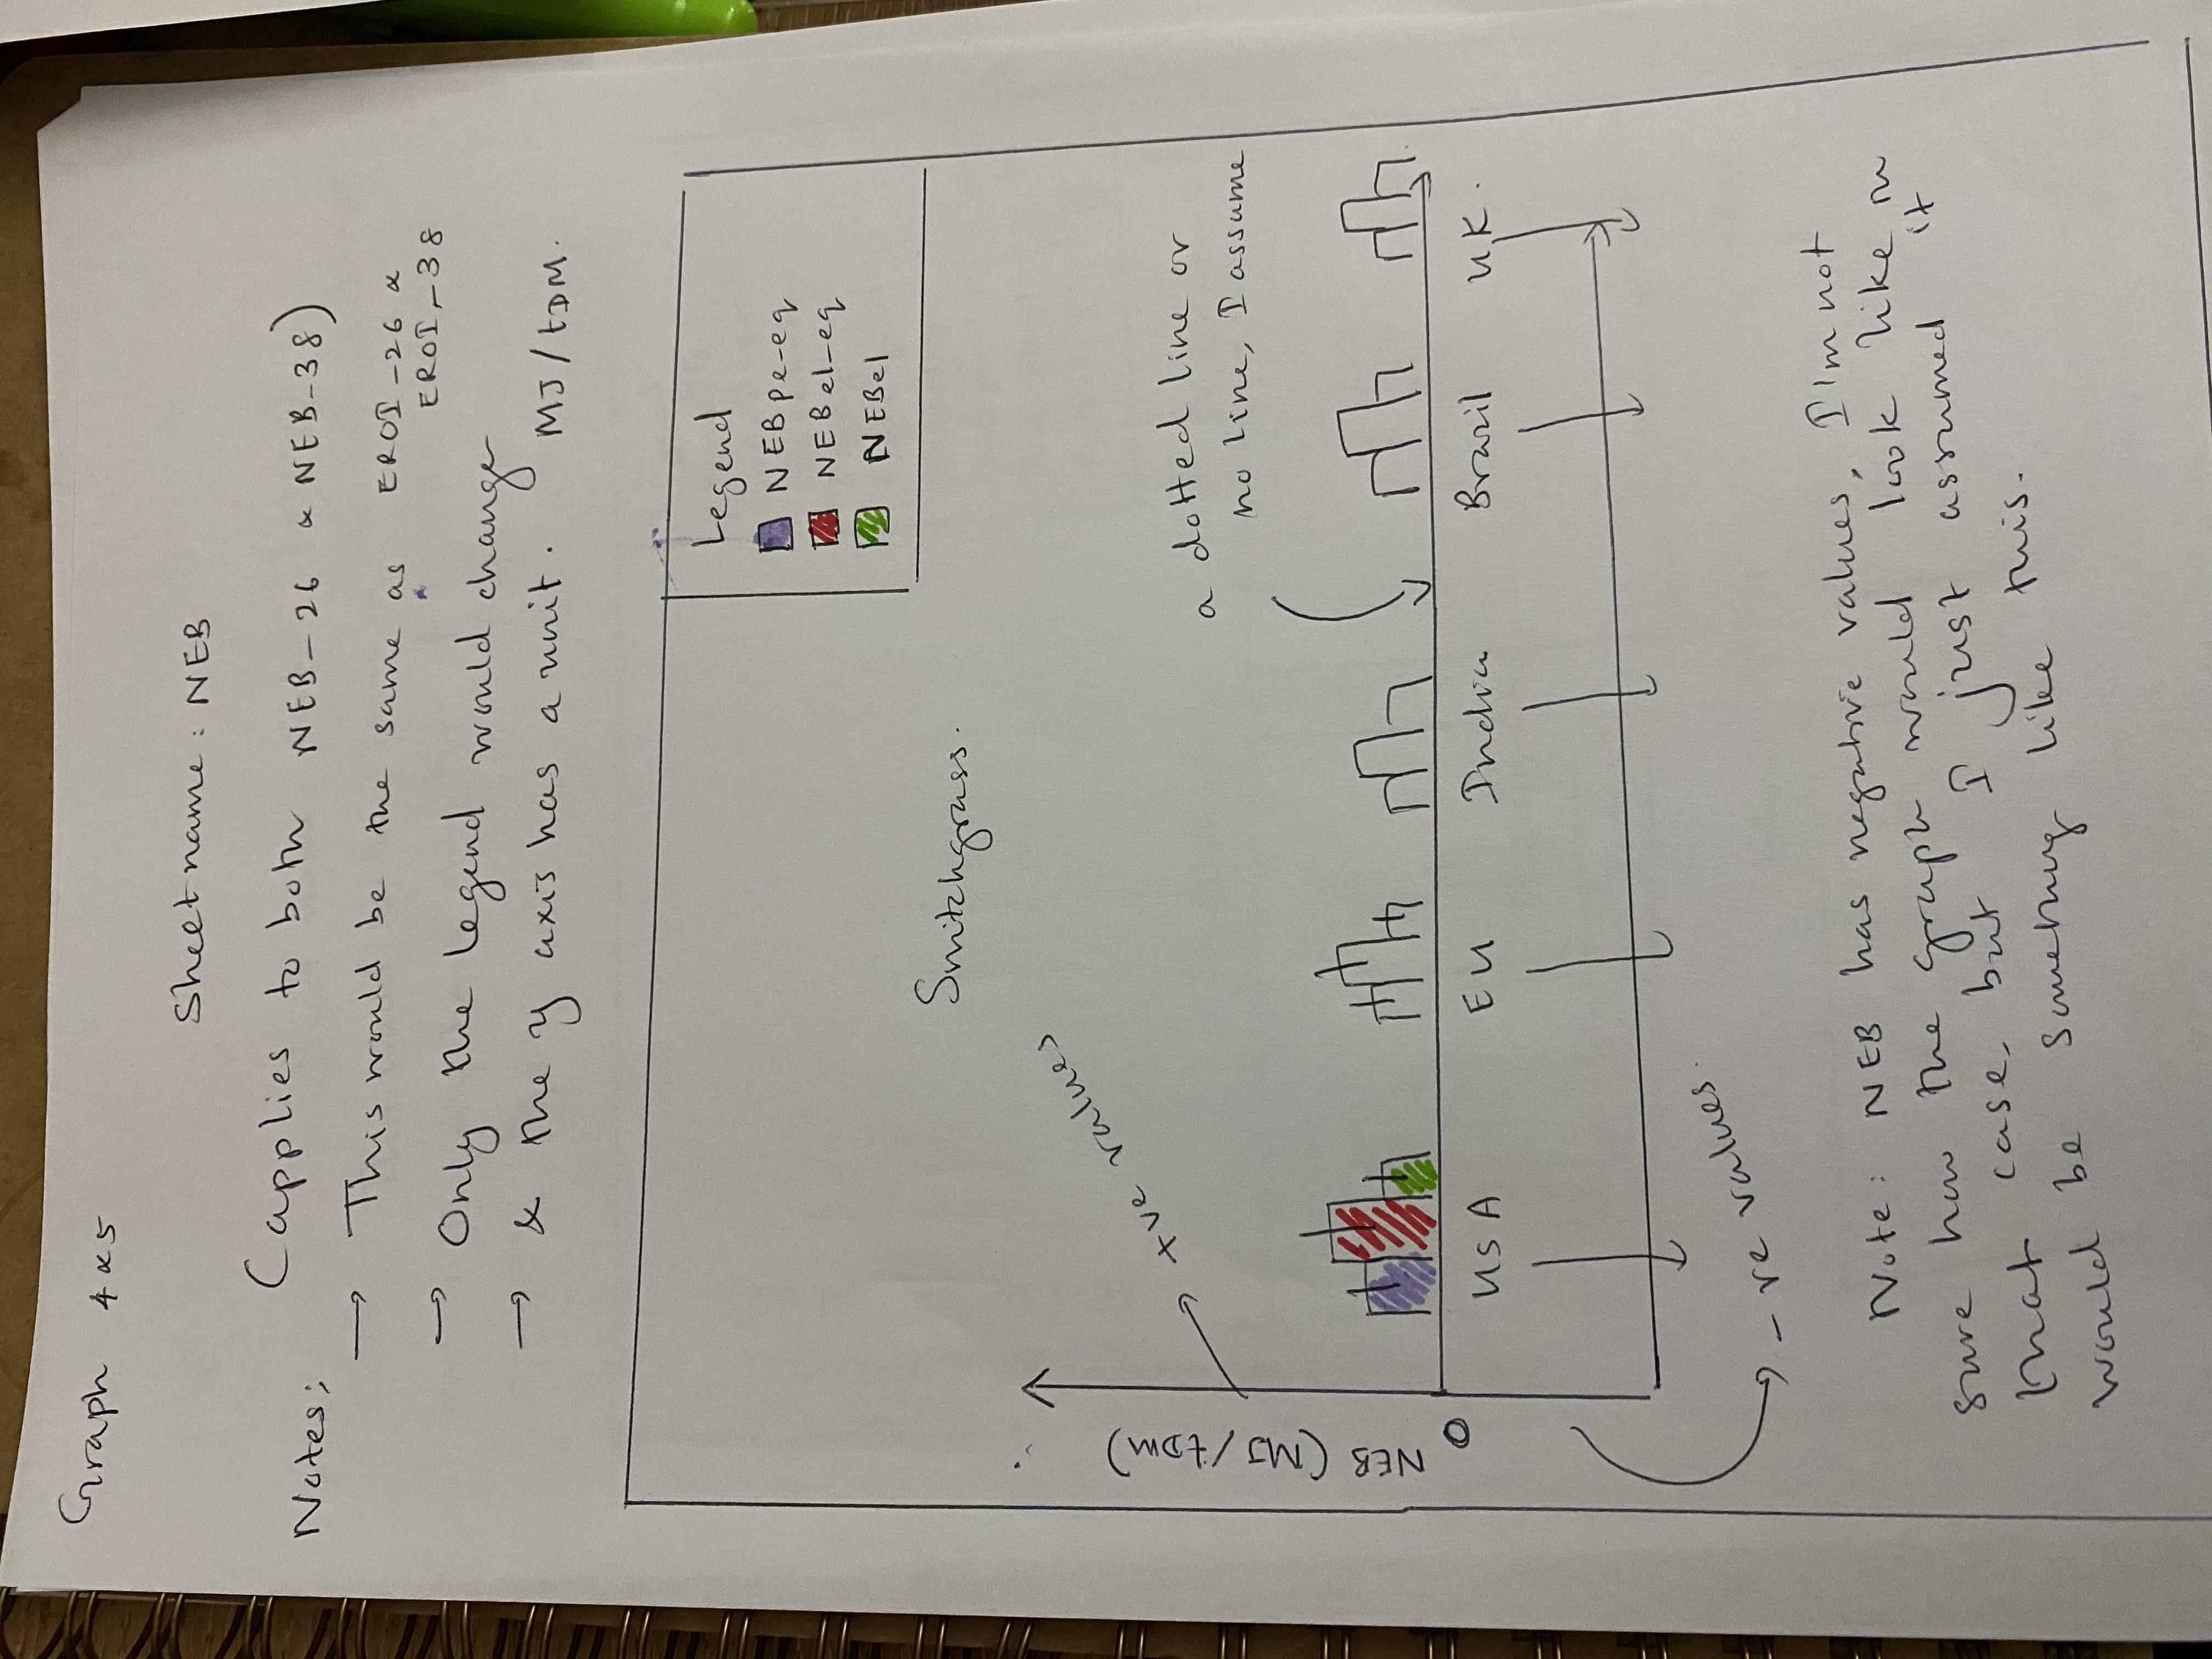 Graph 4 & 5
Sheet name : NEB
(applies to both NEB_26 & NEB_38)
Notes;
→ This would be the same as EROI_26 &
EROI_38
→ Only the legend would change
→ & the y axis has a unit. MJ/tDM.
Legend
NEBpe-eq
NEBel-eq
NEBel
Switchgrass.
NEB (MJ/tDM)
+ve values
a dotted line or
no line, I assume
0
USA EU India Brazil UK.
-ve values.
Note: NEB has negative values, I'm not
sure how the graph would look like in
that case, but I just assumed it
would be something like this.